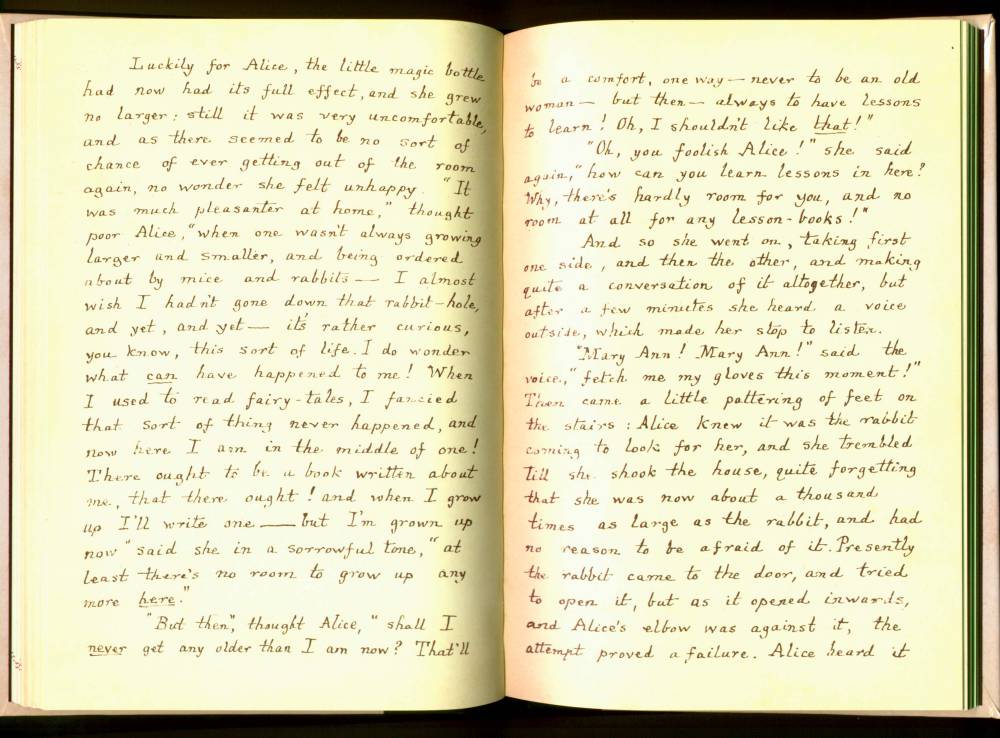 Luckily for Alice, the little magic bottle
had now had its full effect, and she grew
no larger: still it was very uncomfortable,
and as there seemed to be no sort of
chance of ever getting out of the room
again, no wonder she felt unhappy. "It
was much pleasanter at home," thought
poor Alice, "when one wasn't always growing
larger and smaller, and being ordered
about by mice and rabbits — I almost
wish I hadn't gone down that rabbit-hole,
and yet, and yet — it's rather curious,
you know, this sort of life. I do wonder
what can have happened to me! When
I used to read fairy-tales, I fancied
that sort of thing never happened, and
now here I am in the middle of one!
There ought to be a book written about
me, that there ought! and when I grow
up I'll write one — but I'm grown up
now" said she in a sorrowful tone, "at
least there's no room to grow up any
more here."
"But then", thought Alice, "shall I
never get any older than I am now? That'll
be a comfort, one way — never to be an old
woman — but then — always to have lessons
to learn! Oh, I shouldn't like that!"
"Oh, you foolish Alice!" she said
again, "how can you learn lessons in here?
Why, there's hardly room for you, and no
room at all for any lesson-books!"
And so she went on, taking first
one side, and then the other, and making
quite a conversation of it altogether, but
after a few minutes she heard a voice
outside, which made her stop to listen.
"Mary Ann! Mary Ann!" said the
voice, "fetch me my gloves this moment!"
Then came a little pattering of feet on
the stairs: Alice knew it was the rabbit
coming to look for her, and she trembled
till she shook the house, quite forgetting
that she was now about a thousand
times as large as the rabbit, and had
no reason to be afraid of it. Presently
the rabbit came to the door, and tried
to open it, but as it opened inwards,
and Alice's elbow was against it, the
attempt proved a failure. Alice heard it